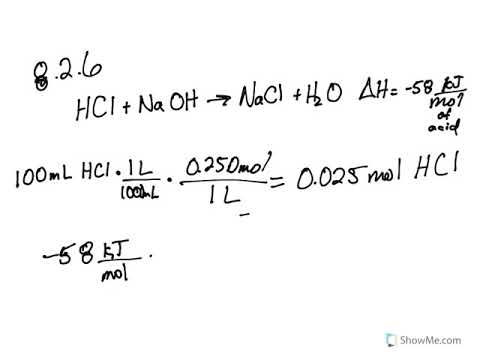 8.2.6
HCl + NaOH → NaCl + H2O ΔH = -58 kJ/mol of acid
100mL HCl · 1L/1000mL · 0.250mol/1L = 0.025 mol HCl
-58 kJ/mol ·
ShowMe.com